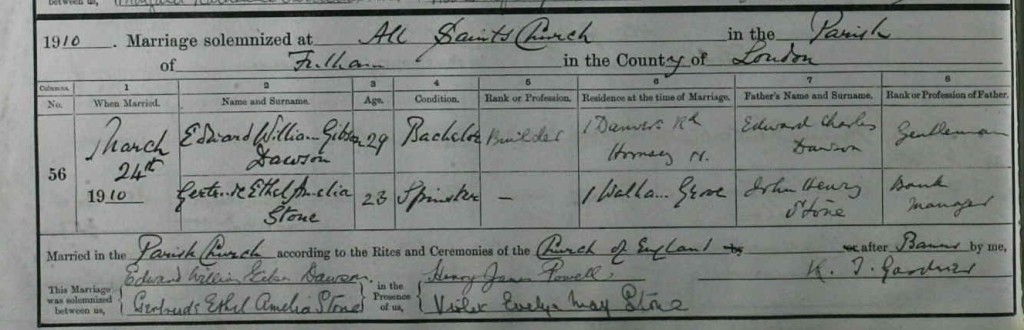 between us,
1910. Marriage solemnized at All Saints Church in the Parish
of Fulham in the County of London
Columns. 1 2 3 4 5 6 7 8
No. When Married. Name and Surname. Age. Condition. Rank or Profession. Residence at the time of Marriage. Father's Name and Surname. Rank or Profession of Father.
56 March 24th 1910 Edward William Gibson Dawson 29 Bachelor Builder 1 Danvers Rd Hornsey N. Edward Charles Dawson Gentleman
Gertrude Ethel Amelia Stone 23 Spinster — 1 Walham Grove John Henry Stone Bank Manager
Married in the Parish Church according to the Rites and Ceremonies of the Church of England by or after Banns by me,
This Marriage was solemnized between us, Edward William Gibson Dawson. in the Presence of us, Henry James Powell K. J. Gardner
Gertrude Ethel Amelia Stone Violet Evelyn May Stone